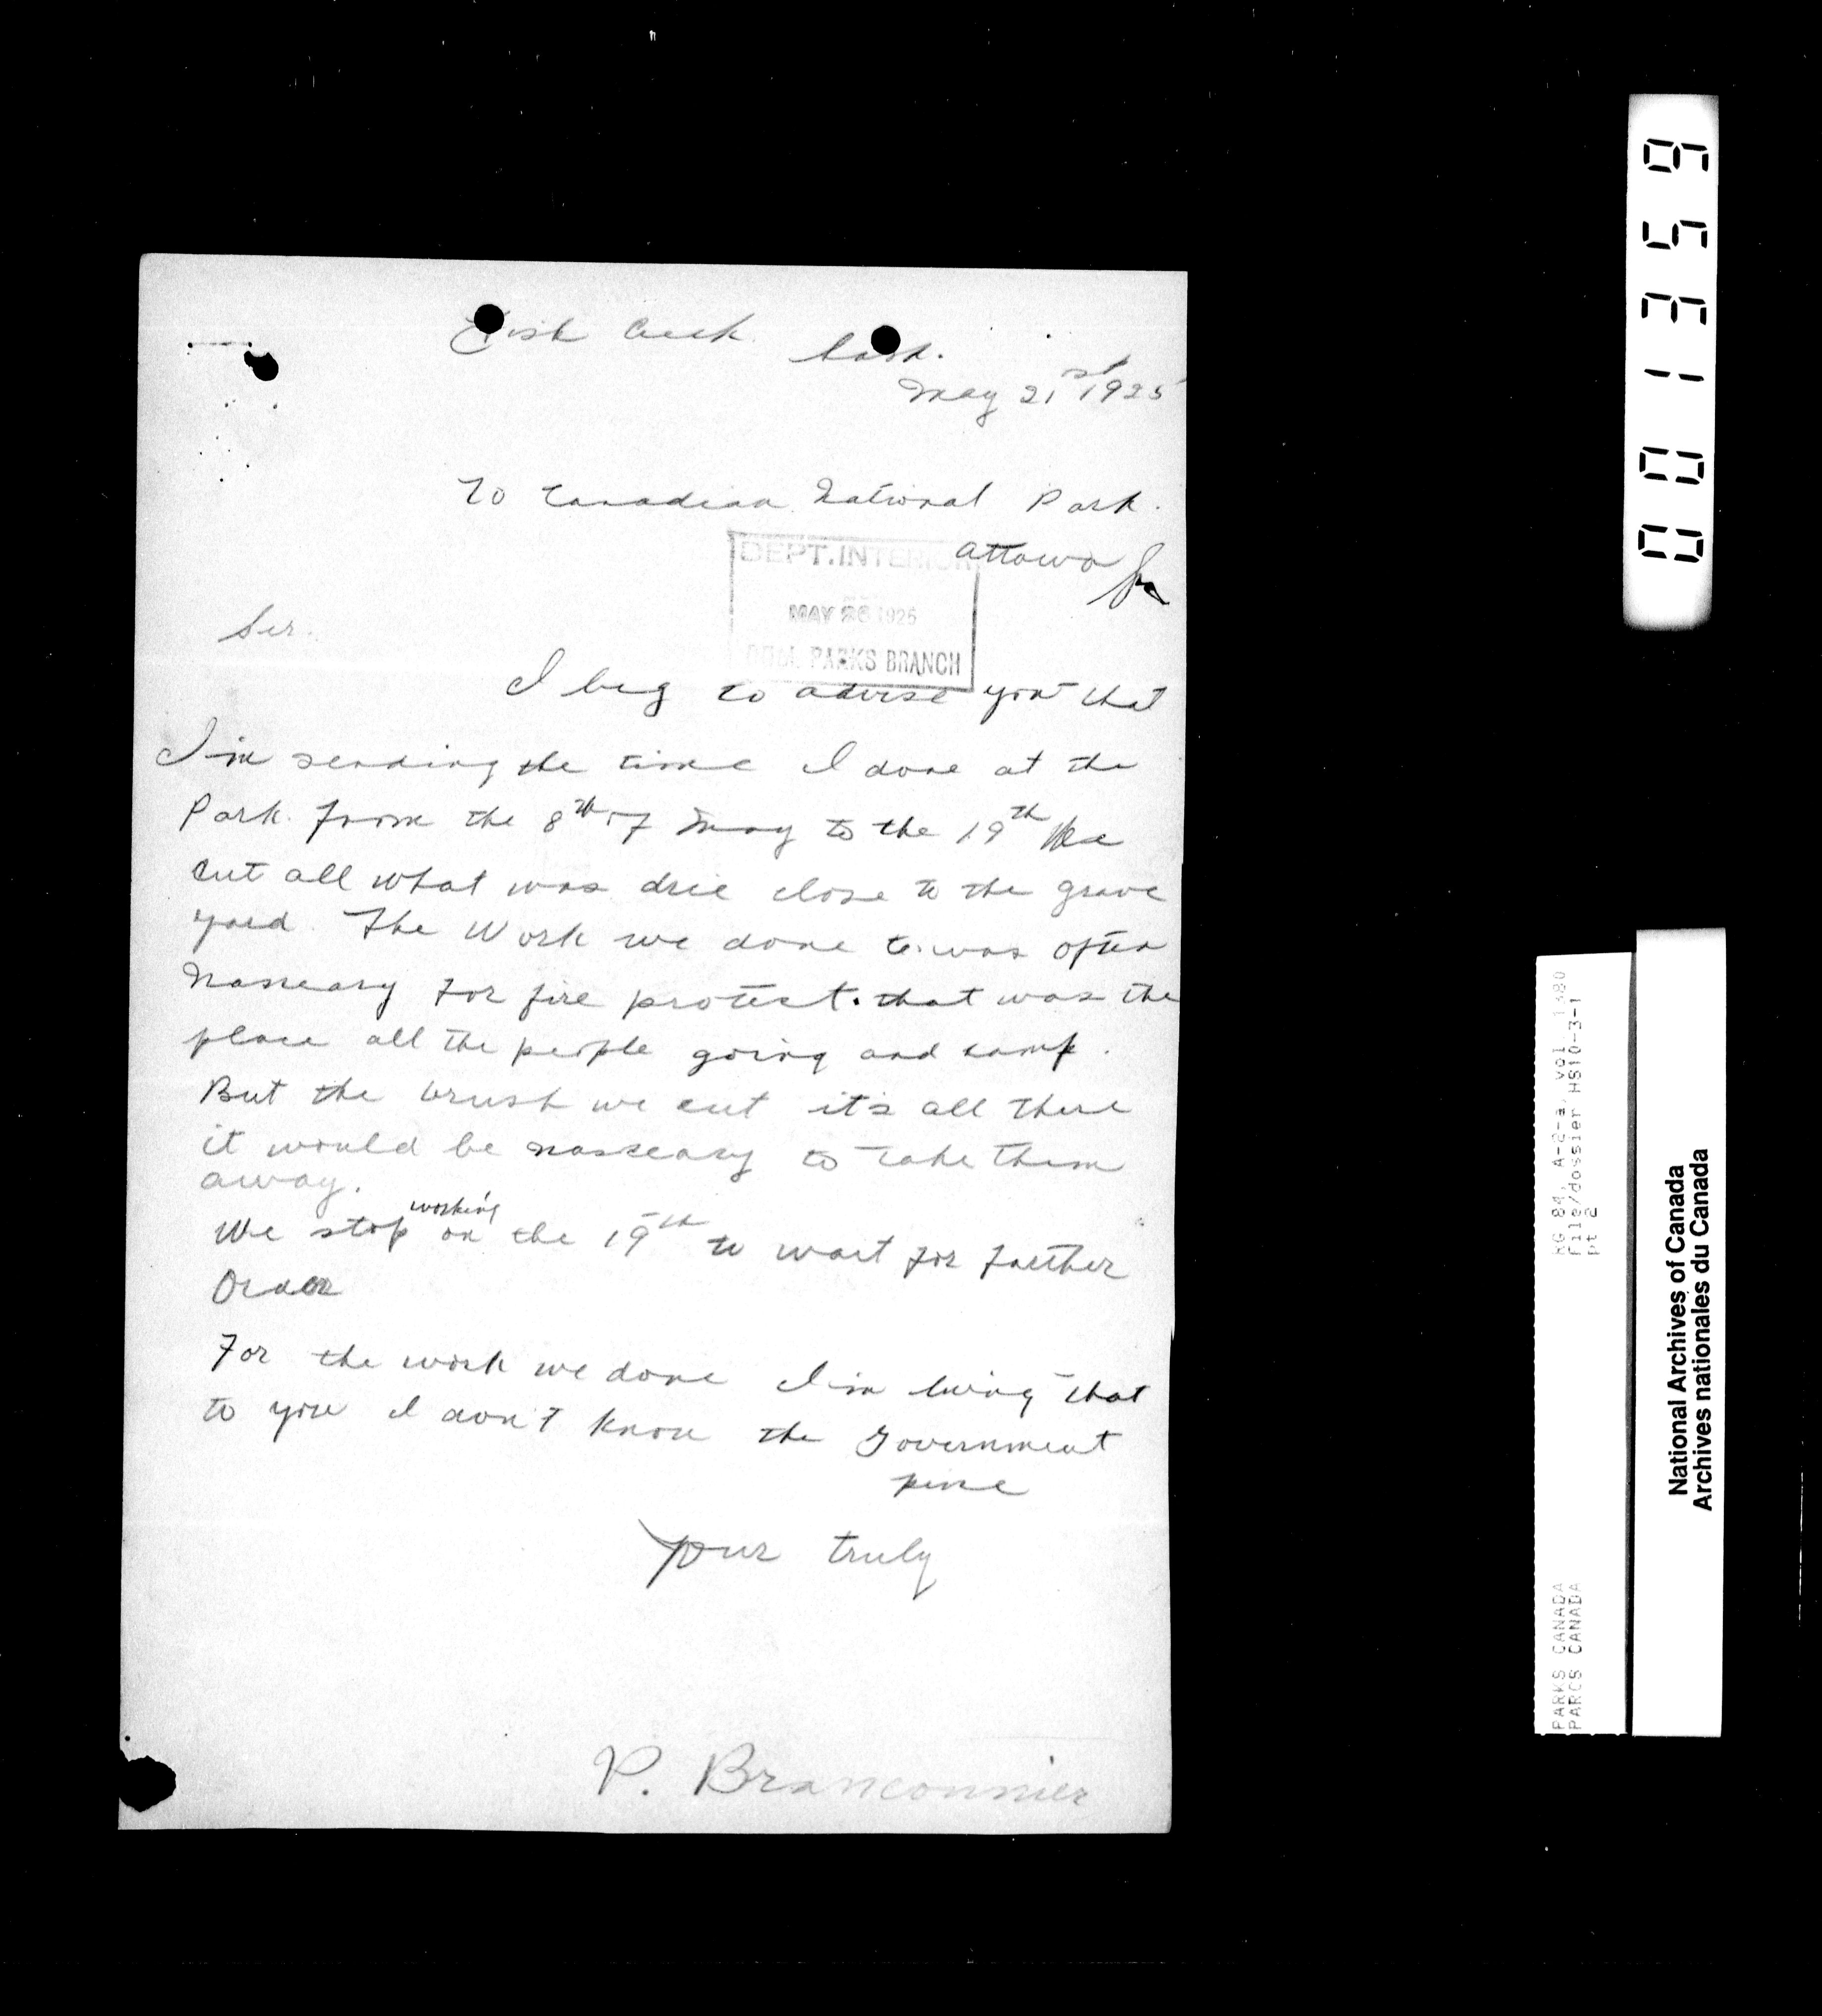 Fish Creek Sask.
May 21st 1925
To Canadian National Park.
Ottawa
DEPT. INTERIOR
MAY 26 1925
DOM. PARKS BRANCH
Sir.
I beg to advise you that
I'm sending the time I done at the
Park from the 8th of May to the 19th We
cut all what was drie close to the grave
yard. The Work we done was often
nasseary for fire protect. that was the
place all the people going and camp.
But the brush we cut it's all there
it would be nasseary to take them
away.
We stop working on the 19th to wait for further
Order
For the work we done I'm living that
to you I don't know the Government
price
your truly
P. Branconnier
001359
RG 84, A-2-a, vol 1380
file/dossier HS10-3-1
pt 2
PARKS CANADA
PARCS CANADA
National Archives of Canada
Archives nationales du Canada